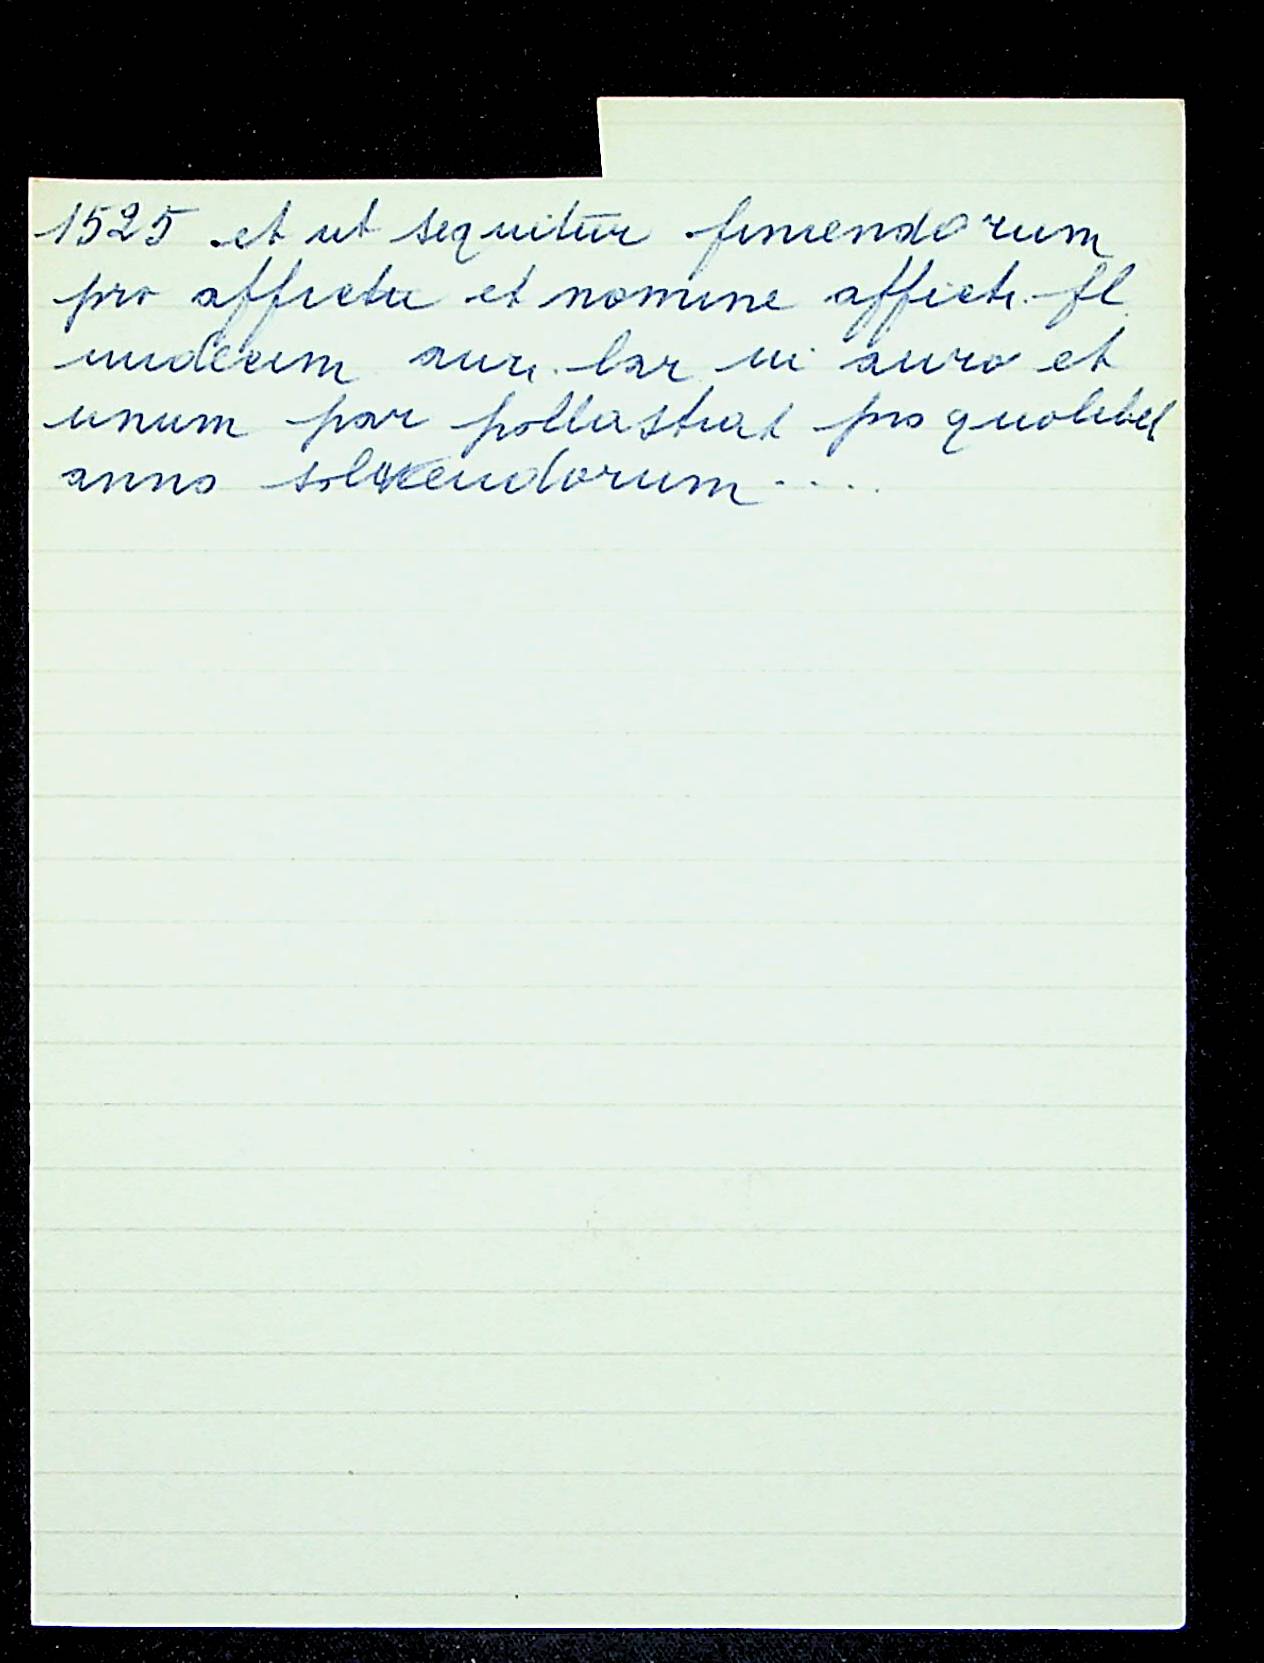 1525 et ut sequitur finiendorum
pro affictu et nomine afficti fl.
undecim aur. lar in auro et
unum par pollastrat pro quolibet
anno solvendorum ....